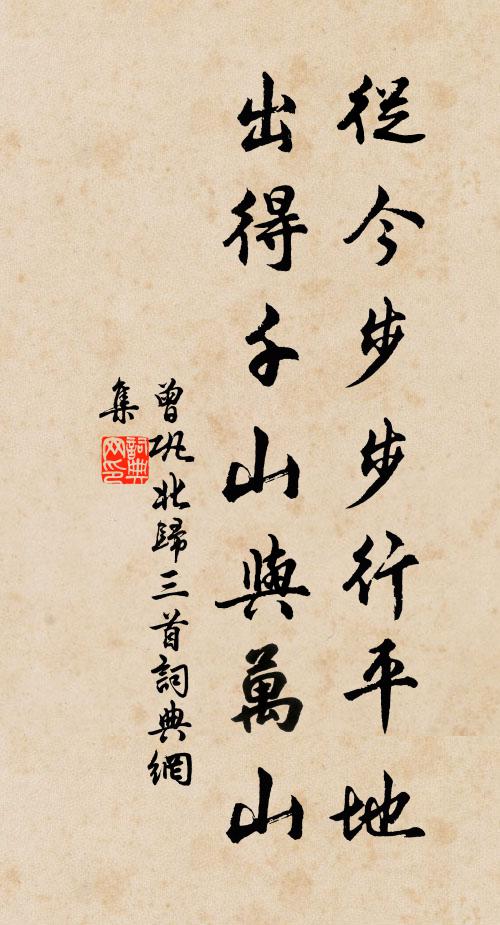 從今步步行平地
出得千山與萬山
曾巩北歸三首詞典網
集
詞典
网印